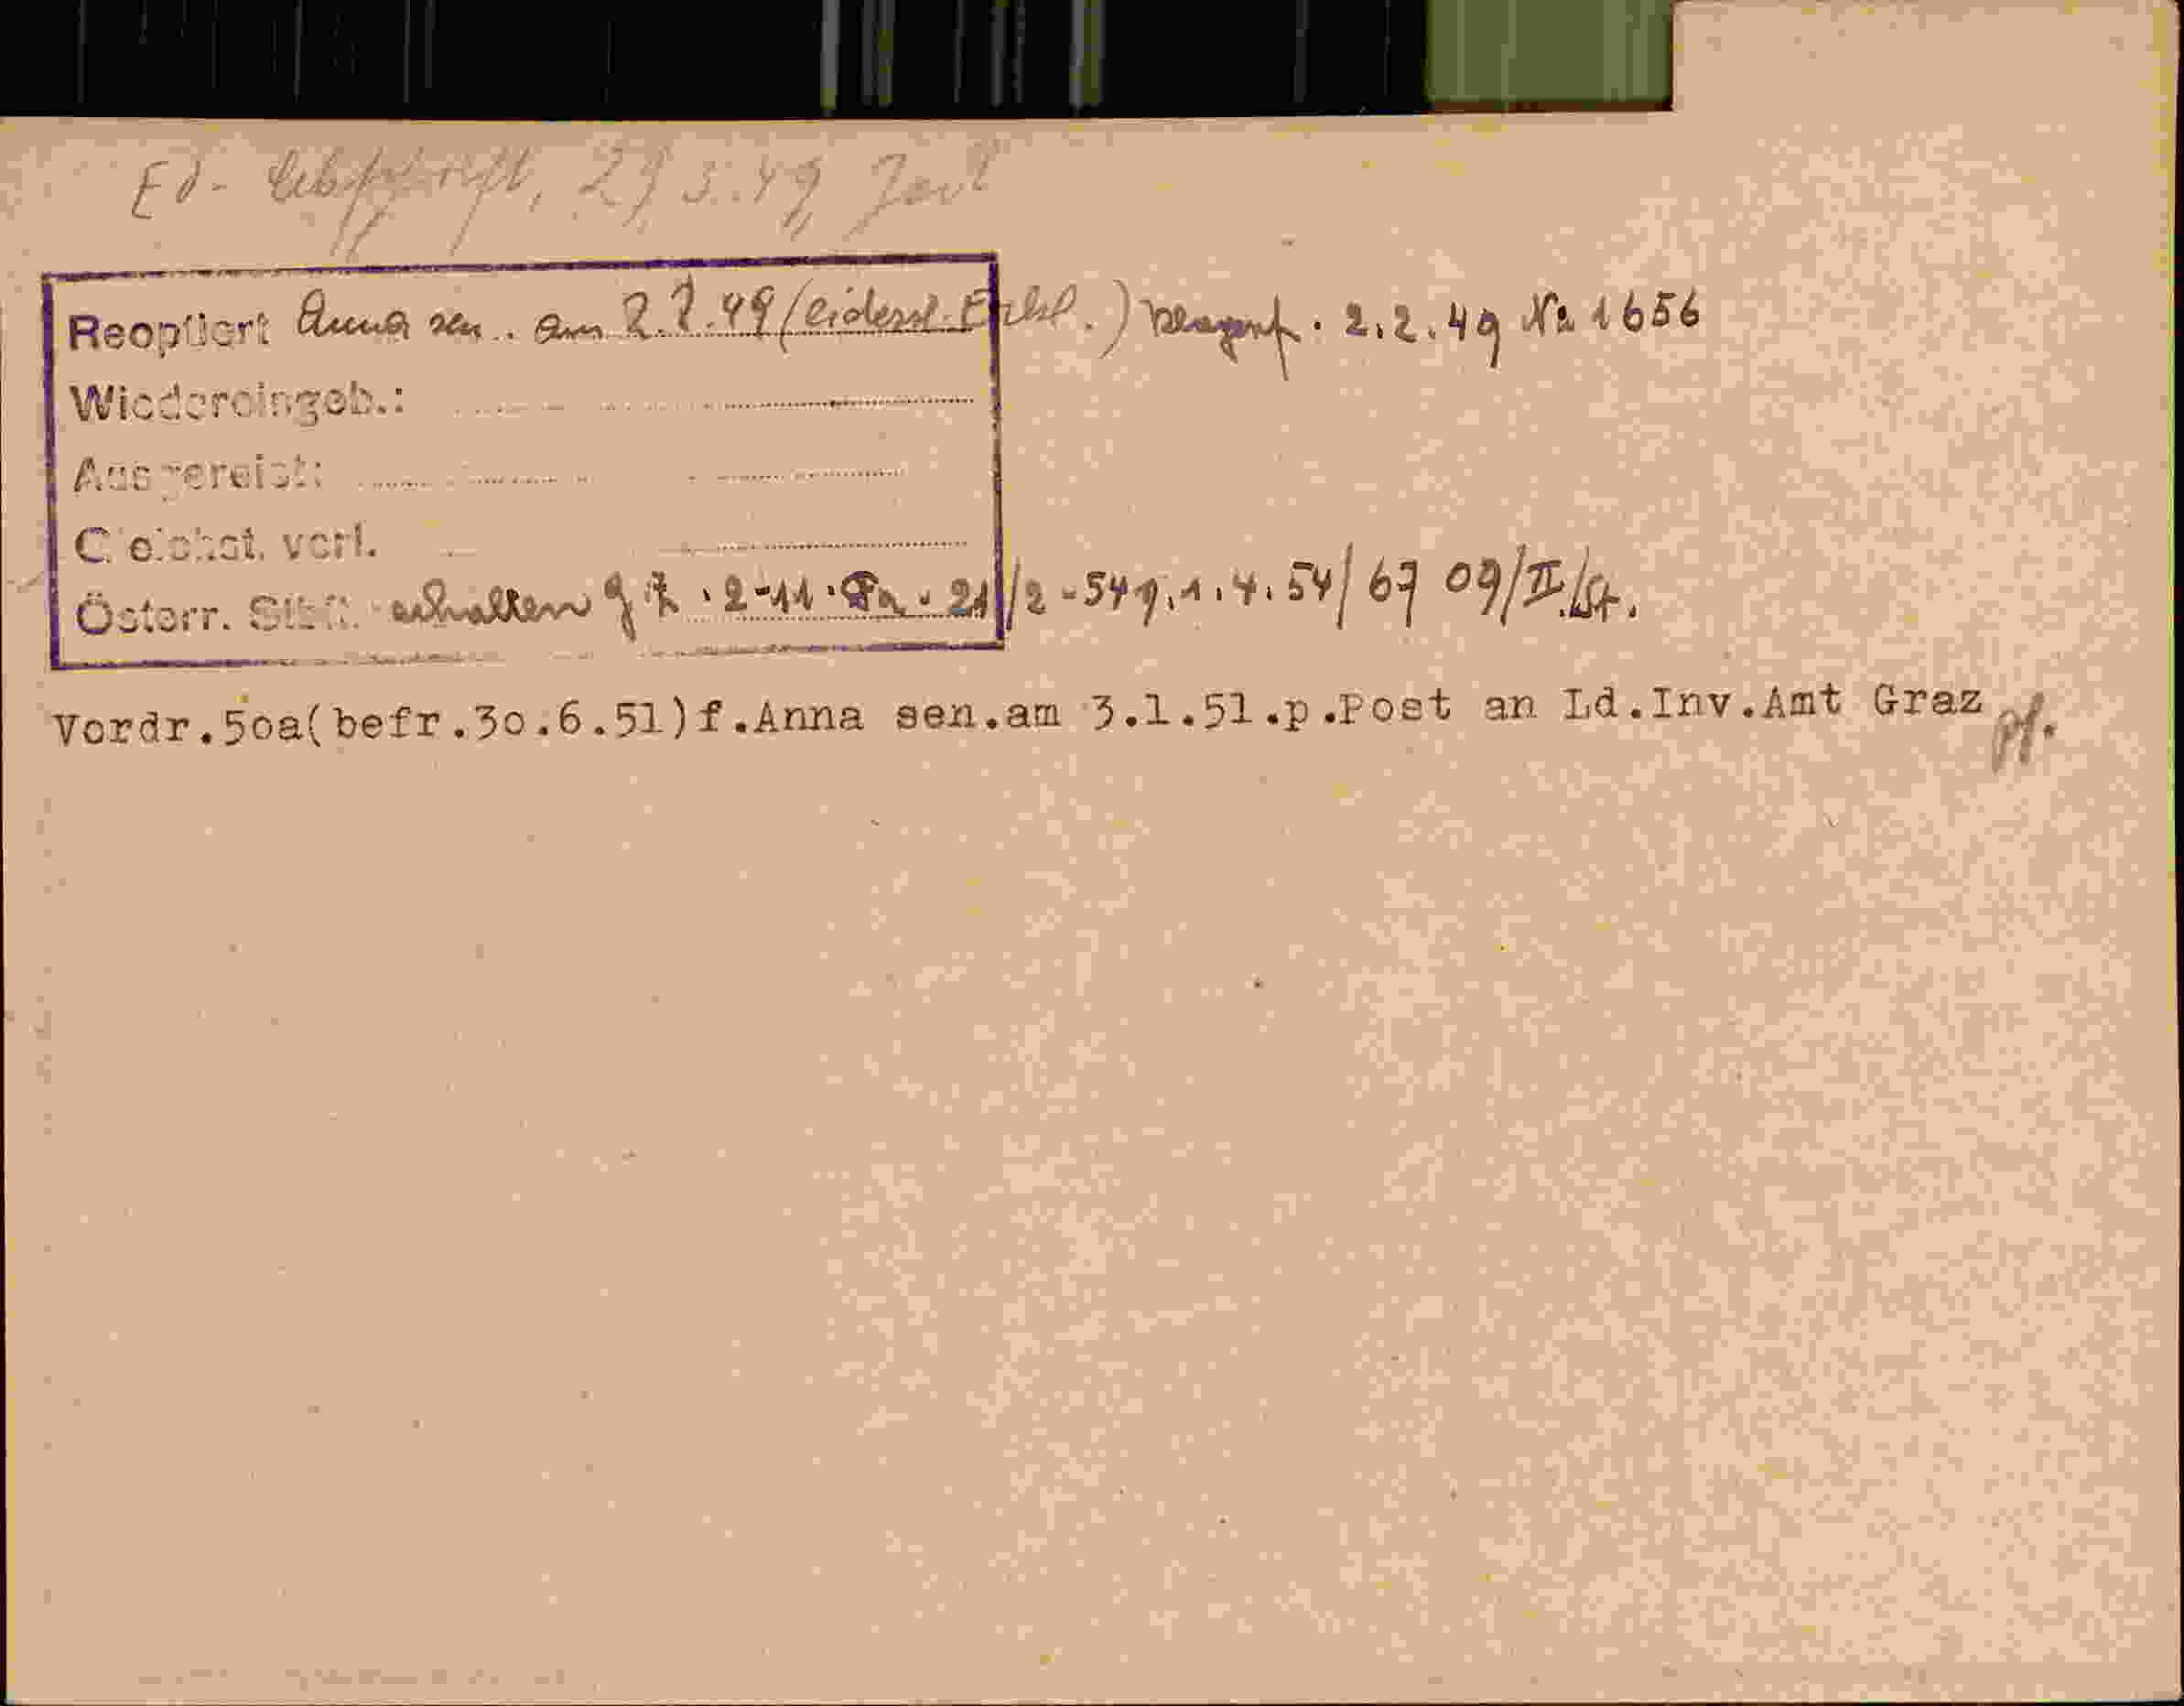 Ed- Abschrift, 29 3.49
Reoptiert Anna sen. am 2.2.49 (eidesst. Erkl.) Klagenf. 2.2.49 No 1656
Wiedereingeb.:
Ausgereist:
Gleichst. verl.
Österr. Stbft. erhalten g Z. 2-11. 21/2-54 1.4.54/ 67 09/II./St.
Vordr.5oa(befr.3o.6.51)f.Anna sen.am 3.1.51.p.Post an Ld.Inv.Amt Graz